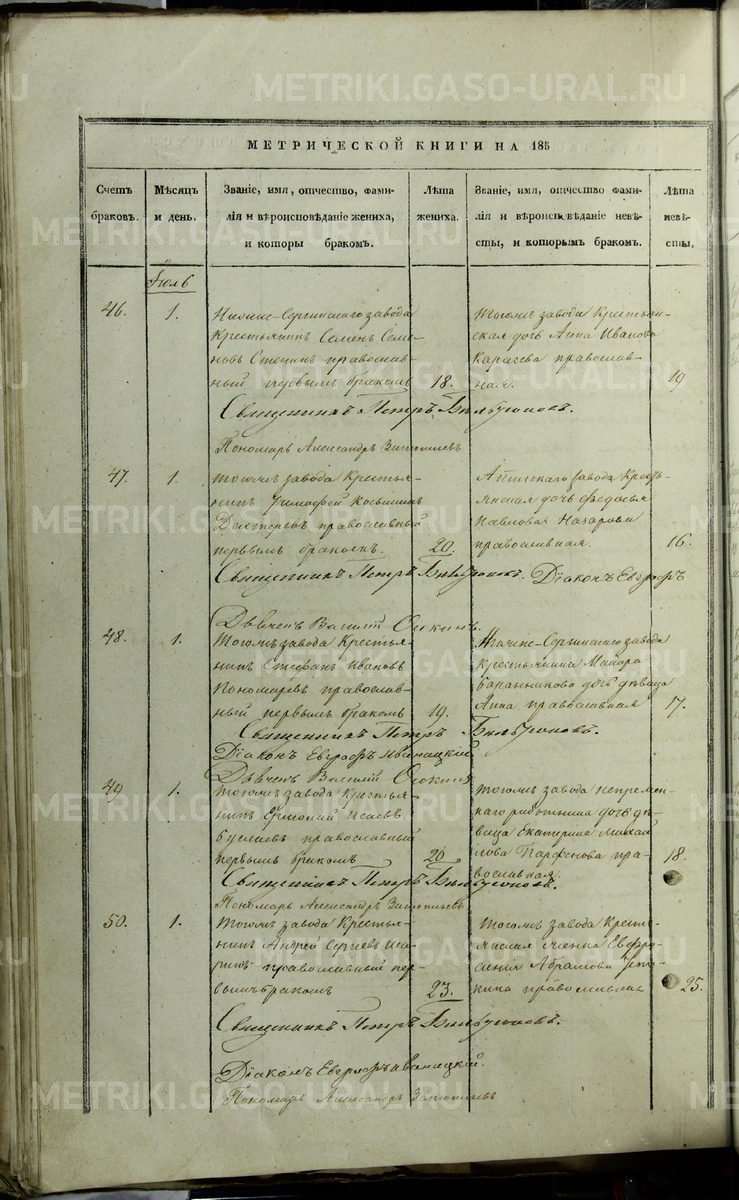 METRIKI.GASO-URAL.RU
МЕТРИЧЕСКОЙ КНИГИ НА 185
Счетъ браковъ.
Мѣсяцъ и день.
Званіе, имя, отчество, фами-
лія и вѣроисповѣданіе жениха,
и которы бракомъ.
Лѣта жениха.
Званіе, имя, отчество фами-
лія и вѣроиспвѣданіе невѣ-
сты, и которымъ бракомъ.
Лѣта невѣ-
сты.
Іюль
46.
1.
Нижне-Сергинскаго завода
Крестьянинъ Семенъ Семе-
новъ православ-
ный первымъ бракомъ
18.
Тогожъ завода Крестьян-
ская дочь Анна Иванова
Карасева православ-
ная.
19
Священникъ Петръ
Пономарь Александръ
47.
1.
Тогожъ завода Крестья-
нинъ Тимофей Космин
православный
первымъ бракомъ.
20.
завода Крест-
янская дочь Федосья
Павлова Назарова
православная.
16.
Священникъ Петръ Діаконъ Евграфъ
Дьячекъ Василій
48.
1.
Тогожъ завода Крестья-
нинъ Стефанъ Ивановъ
Пономаревъ православ-
ный первымъ бракомъ
19.
завода
крестьянина Майора
Баранникова дочь дѣвица
Анна православная
17.
Священникъ Петръ
Діаконъ Евграфъ Иваницкій
Дьячекъ Василій
49
1.
Тогожъ завода Крестья-
нинъ Ермолай Исаевъ
православный
первымъ бракомъ
20
Тогожъ завода непремен-
наго работника дочь дѣ-
вица Екатерина Михаи
лова Парфенова пра-
вославная.
18.
Священникъ Петръ
Пономарь Александръ
50.
1.
Тогожъ завода Крестья-
нинъ Андрей Сергеевъ
православный пер-
вымъ бракомъ
23.
Тогожъ завода Кресть-
янская женка Евфро
синія Абрамова
православная
25.
Священникъ Петръ
Діаконъ Евграфъ Иваницкій.
Пономарь Александръ